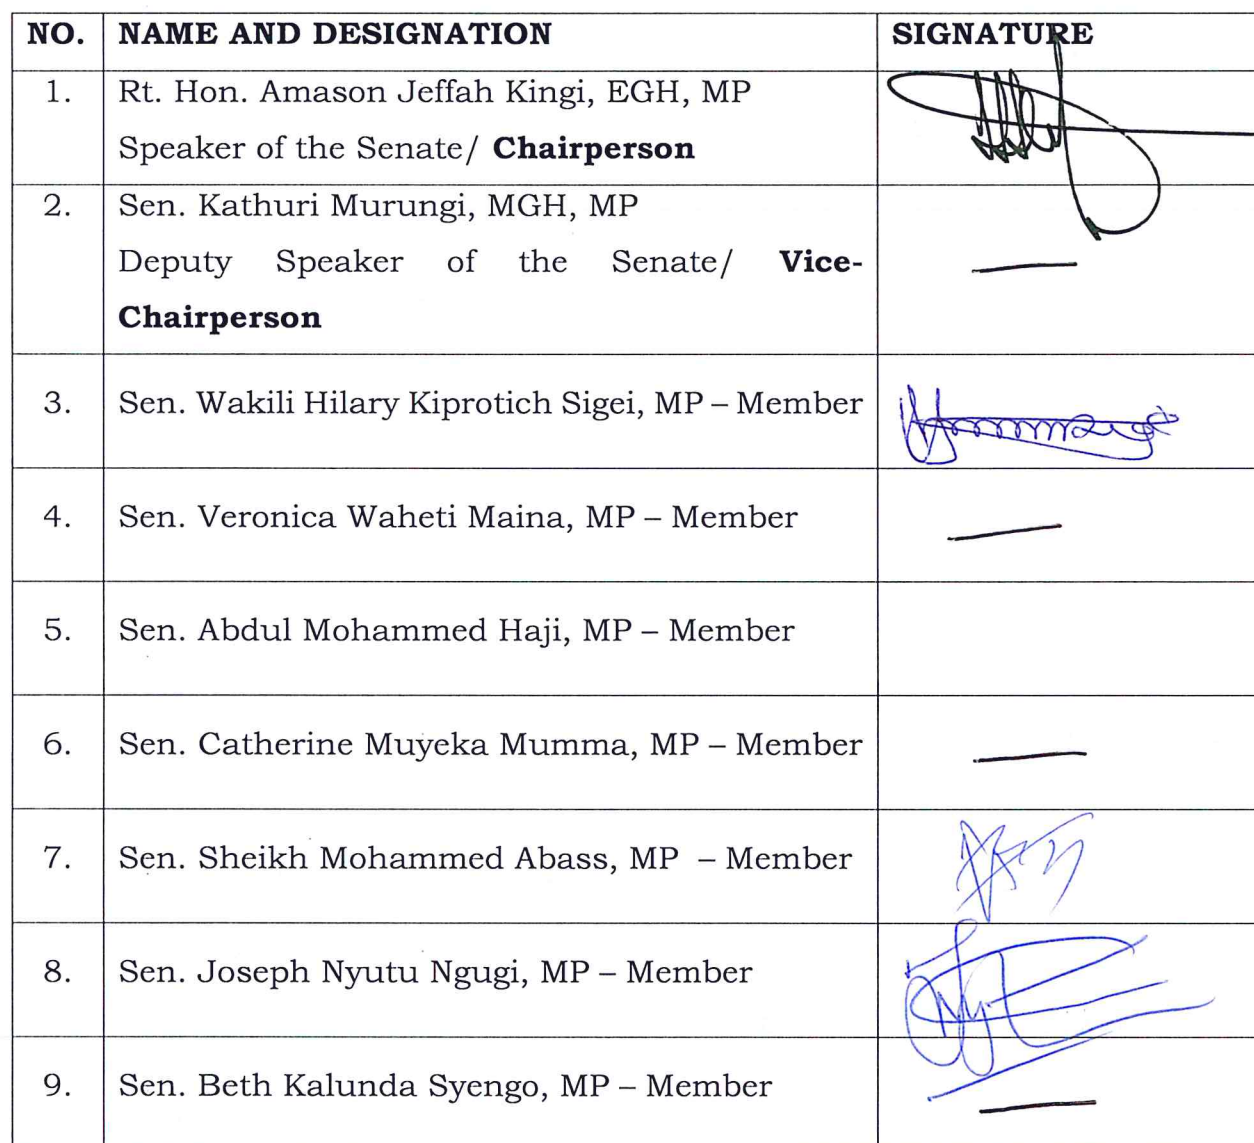 NO. NAME AND DESIGNATION SIGNATURE
1. Rt. Hon. Amason Jeffah Kingi, EGH, MP
Speaker of the Senate/ Chairperson
2. Sen. Kathuri Murungi, MGH, MP
Deputy Speaker of the Senate/ Vice-
Chairperson
3. Sen. Wakili Hilary Kiprotich Sigei, MP – Member
4. Sen. Veronica Waheti Maina, MP – Member
5. Sen. Abdul Mohammed Haji, MP – Member
6. Sen. Catherine Muyeka Mumma, MP – Member
7. Sen. Sheikh Mohammed Abass, MP – Member
8. Sen. Joseph Nyutu Ngugi, MP – Member
9. Sen. Beth Kalunda Syengo, MP – Member